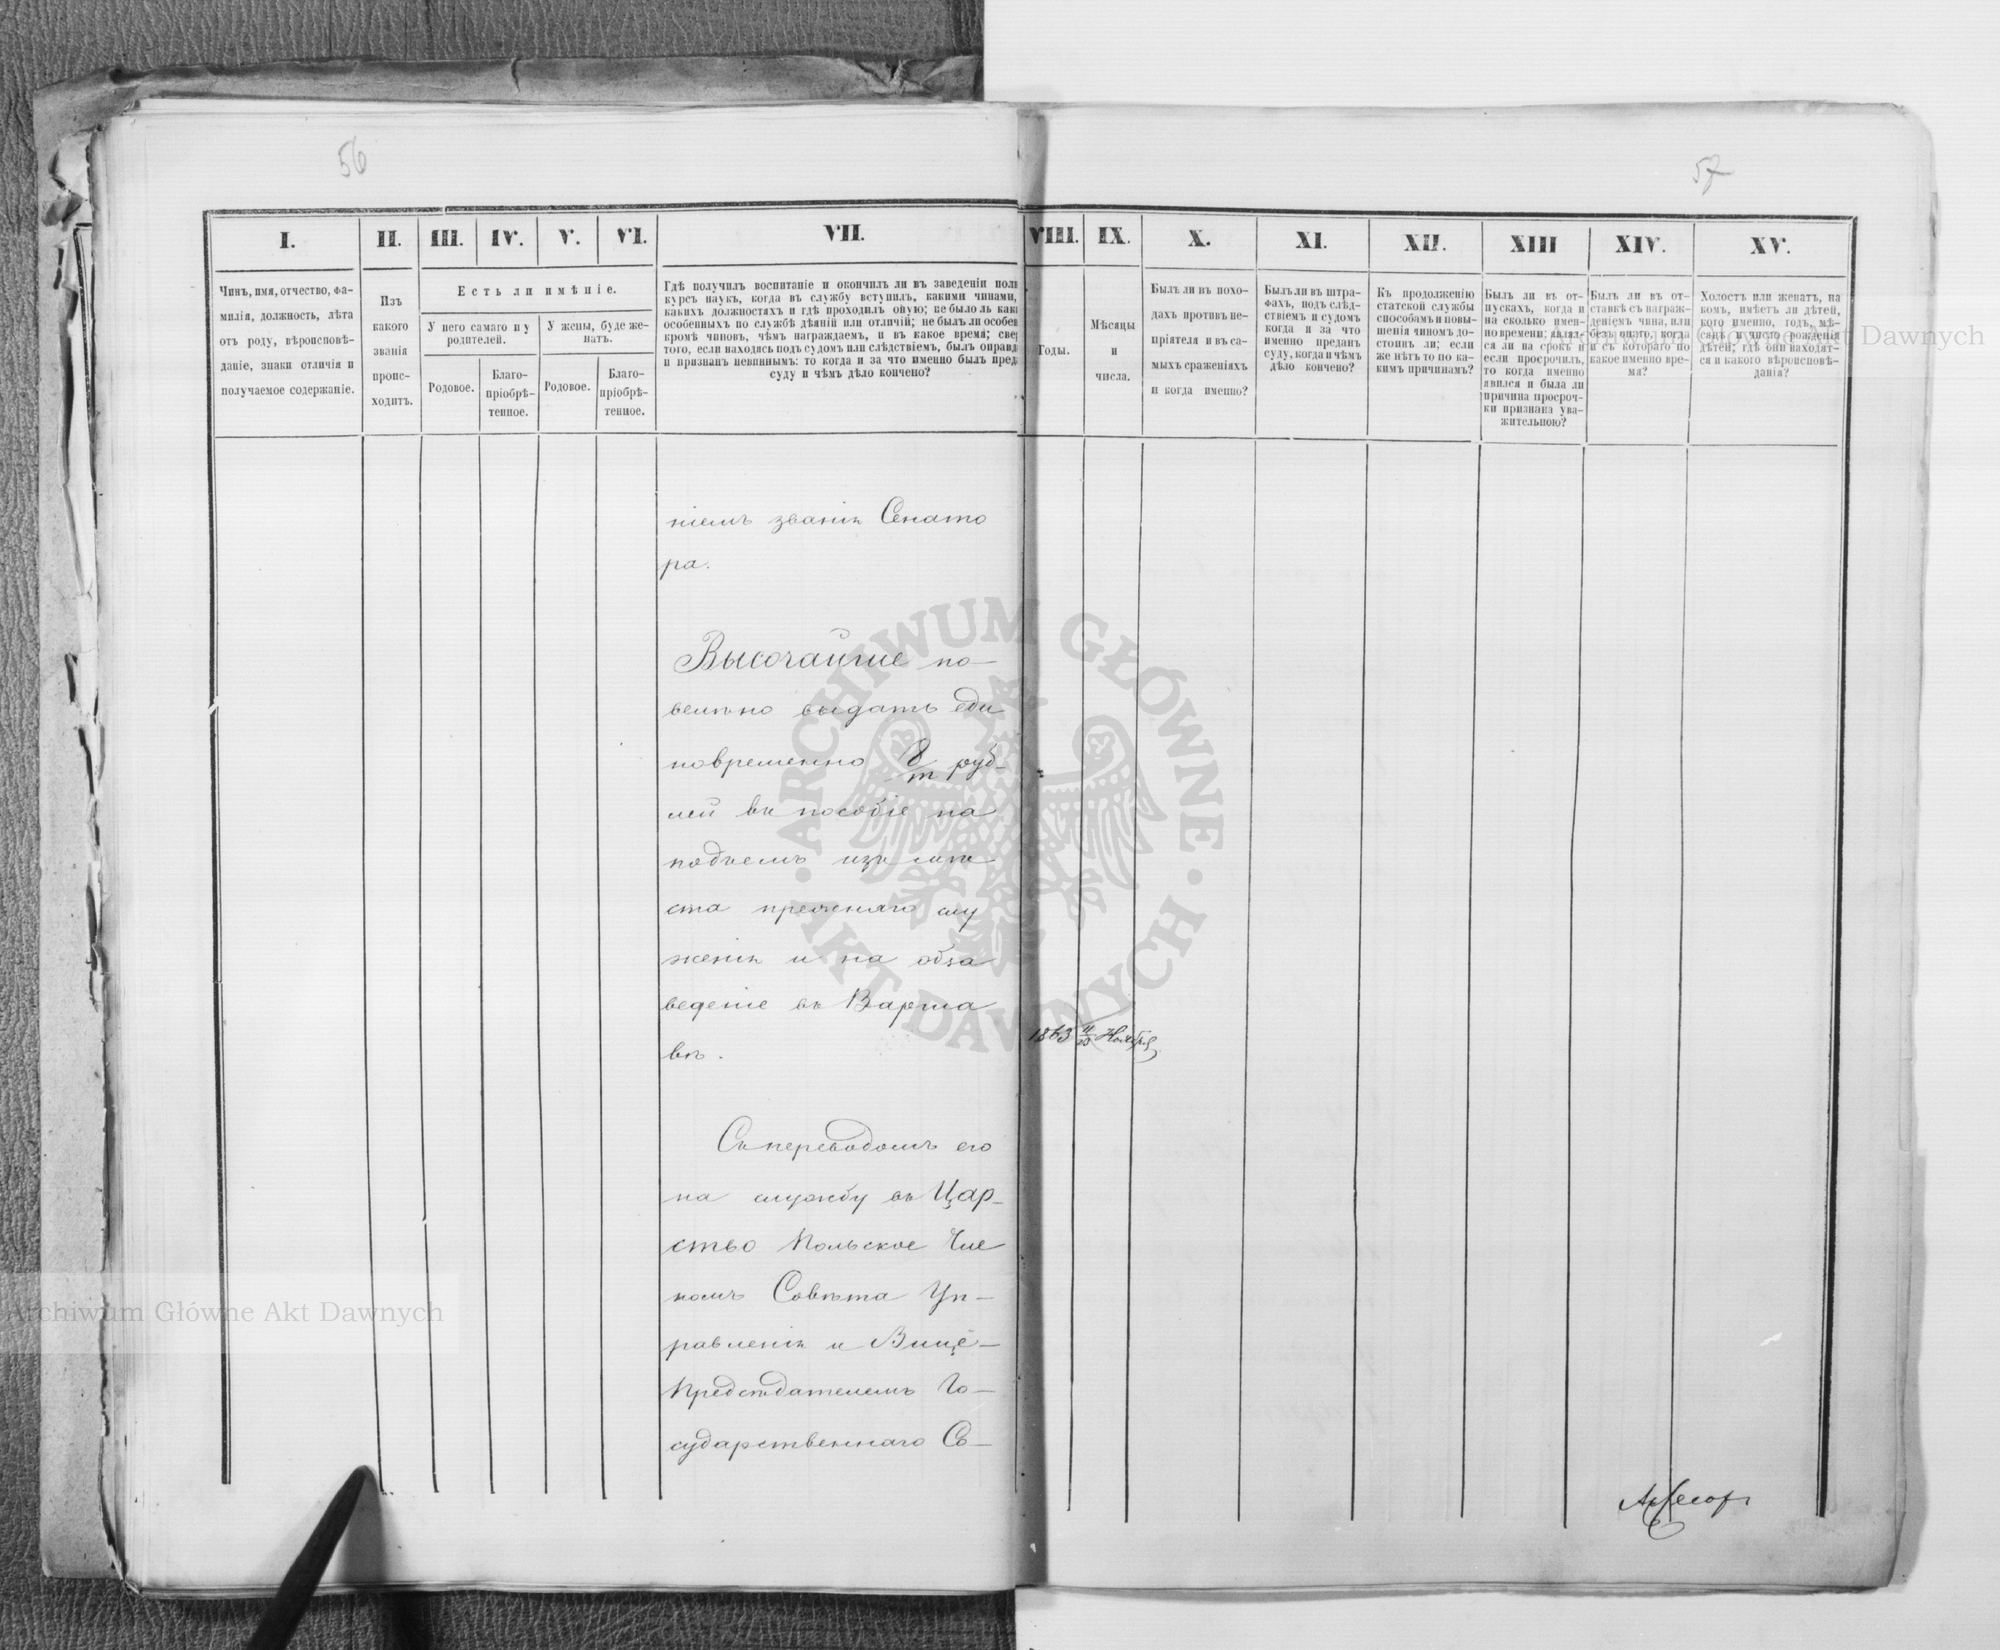 56
57
I.
II.
III.
IV.
V.
VI.
VII.
VIII.
IX.
X.
XI.
XII.
XIII
XIV.
XV.
Чинъ, имя, отчество, фа-
милія, должность, лѣта
отъ роду, вѣроисповѣ-
даніе, знаки отличія и
получаемое содержаніе.
Изъ
какого
званія
проис-
ходитъ.
Есть ли имѣніе.
У него самаго и у
родителей.
У жены, буде же-
натъ.
Родовое.
Благо-
пріобрѣ-
тенное.
Родовое.
Благо-
пріобрѣ-
тенное.
Гдѣ получилъ воспитаніе и окончилъ ли въ заведеніи полн
курсъ наукъ, когда въ службу вступилъ, какими чинами,
какихъ должностяхъ и гдѣ проходилъ оную; не было ль каки
особенныхъ по службѣ дѣяній или отличій; не былъ ли особен
кромѣ чиновъ, чѣмъ награждаемъ, и въ какое время; свер
того, если находясь подъ судомъ или слѣдствіемъ, былъ оправда
и признанъ невиннымъ: то когда и за что именно былъ преда
суду и чѣмъ дѣло кончено?
Годы.
Мѣсяцы
и
числа.
Былъ ли въ похо-
дахъ противъ не-
пріятеля и въ са-
мыхъ сраженіяхъ
и когда именно?
Былъ ли въ штра-
фахъ, подъ слѣд-
ствіемъ и судомъ
когда и за что
именно преданъ
суду, когда и чѣмъ
дѣло кончено?
Къ продолженію
статской службы
способамъ и повы-
шенія чиномъ до-
стоинъ ли; если
же нѣтъ то по ка-
кимъ причинамъ?
Былъ ли въ от-
пускахъ, когда и
на сколько имен-
но времени; являл-
ся ли на срокъ и
если просрочилъ,
то когда именно
явился и была ли
причина просроч-
ки признана ува-
жительною?
Былъ ли въ от-
ставкѣ съ награж-
деніемъ чина, или
безъ онаго, когда
и съ котораго по
какое именно вре-
мя?
Холостъ или женатъ, на
комъ, имѣетъ ли дѣтей,
кого именно, годъ, мѣ-
сяцъ и число рожденія
дѣтей; гдѣ они находят-
ся и какого вѣроисповѣ-
данія?
ніемъ званія Сенато
ра.
Высочайше по-
велѣно выдать еди
новременно 8/т руб-
лей въ пособіе на
подъемъ изъ мѣ
ста прежняго слу
женія и на обза
веденіе въ Варша
вѣ.
1863 11/23 Ноября
Съ переводомъ его
на службу въ Цар-
ство Польское Чле
номъ Совѣта Уп-
равленія и Вице-
Предсѣдателемъ Го-
сударственнаго Со-
ARCHIWUM GŁÓWNE AKT DAWNYCH
Archiwum Główne Akt Dawnych
Archiwum Główne Akt Dawnych